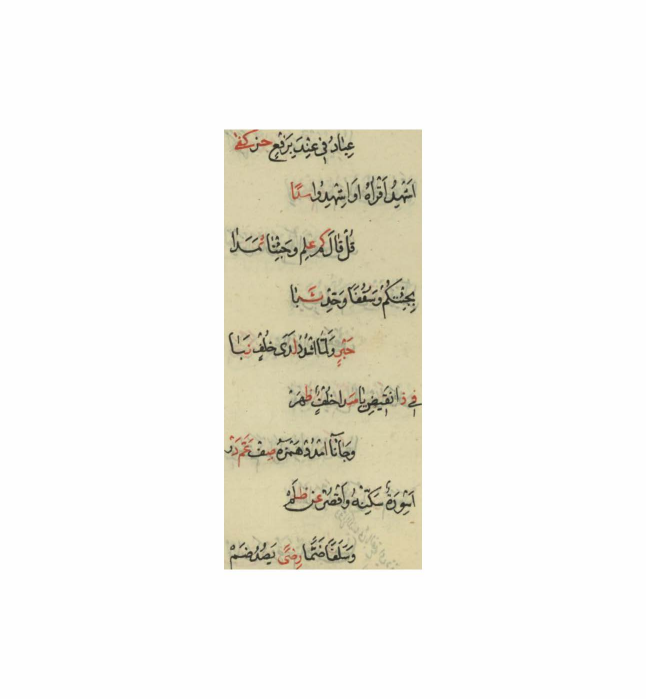 عِبَادُ فِي عِنْدَ بِرَفْعٍ حُزْ كَفَى
اَشْهِدُ اَقْرَاهُ اَوَاشْهِدُوا مَدًا
قُلْ قَالَ كَمْ عِلْمٍ وَجِئْنَا ثَمَدَا
بِجِئْتُكُمْ وَسُقُفًا وَحِّدْ ثَبَا
حَبْرٍ وَلَمَّا اشْدُدْ لَدَى خُلْفٍ نَبَا
فِي ذَا نُقَيِّضْ يَا صَدَا خُلْفٌ ظَهَرْ
وَجَاءَنَا امْدُدْ هَمْزَهُ صِفْ عَمَّ دَرْ
اَسْوِرَةٌ سَكِّنْهُ وَاقْصُرْ عَنْ ظُلَمْ
وَسَلَفًا ضَمَّا رِضًى يَصُدُّ ضَمْ